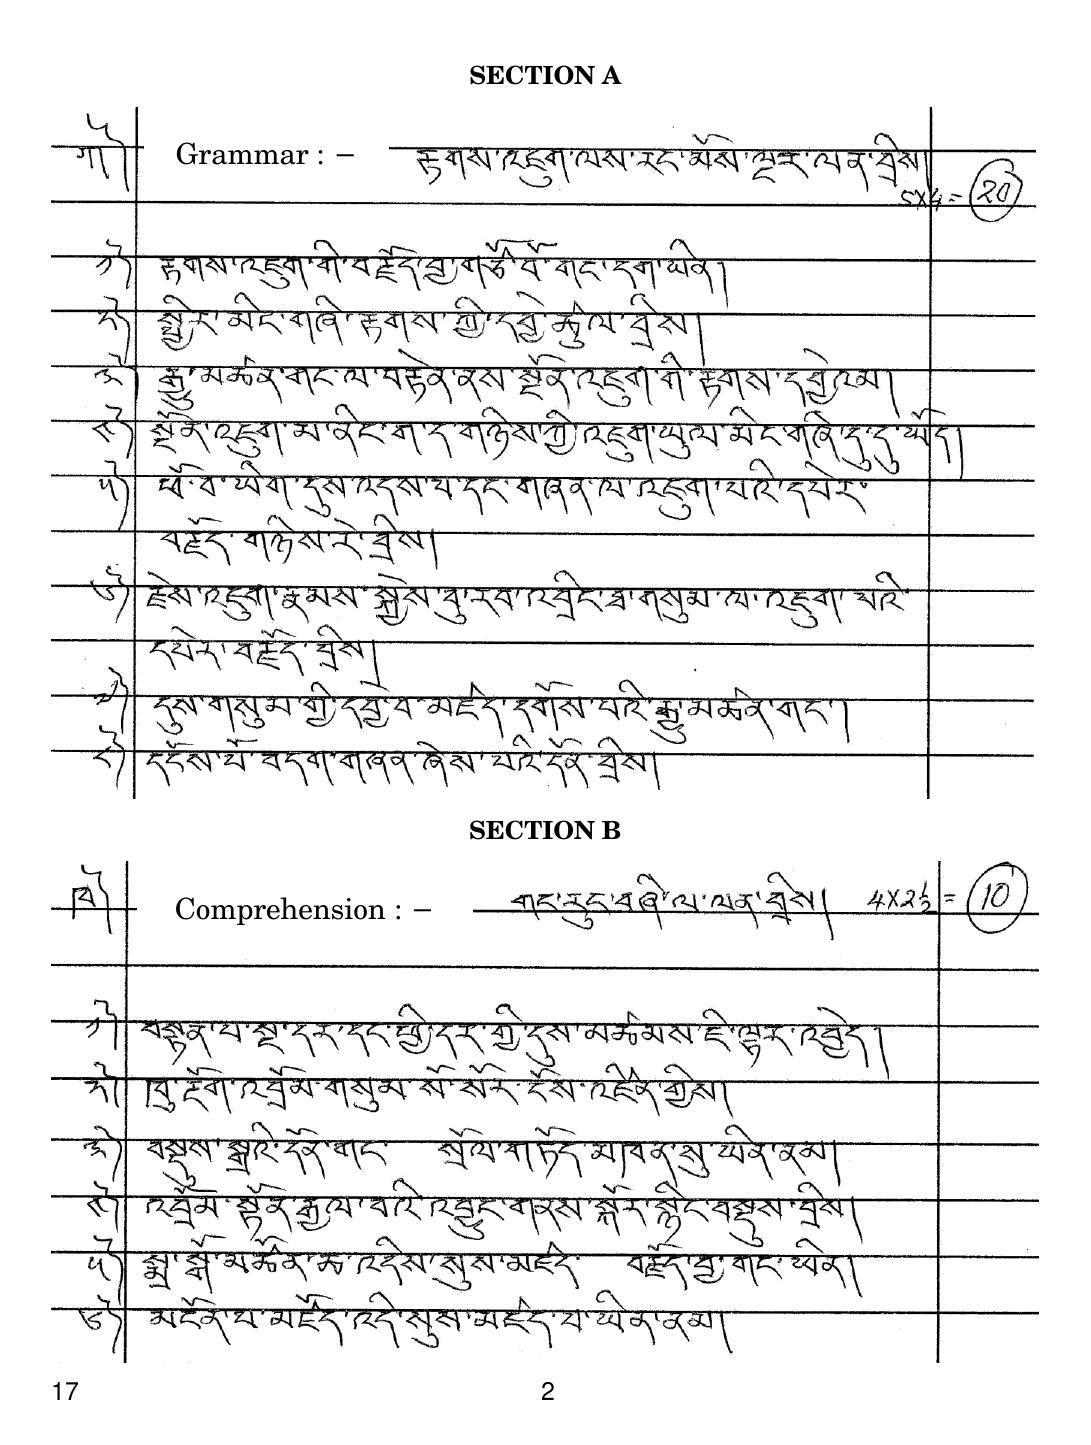 SECTION A
ཀ༽ Grammar : – རྟགས་འཇུག་ལས་རང་མོས་ལྔར་ལན་བྲིས། 5×4= 20
༡༽ རྟགས་འཇུག་གི་བརྗོད་བྱ་གཙོ་བོ་གང་དག་ཡིན།
༢༽ སྤྱིར་མིང་གཞི་རྟགས་ཀྱི་དབྱེ་ཚུལ་བྲིས།
༣༽ རྒྱུ་མཚན་གང་ལ་བརྟེན་ནས་སྔོན་འཇུག་གི་རྟགས་དབྱེའམ།
༤༽ སྔོན་འཇུག་མ་ནིང་ག་ད་གཉིས་ཀྱི་འཇུག་ཡུལ་མིང་གཞི་དུ་དུ་ཡོད།
༥༽ ཕོ་བ་ཡིག་དུས་འདས་པ་དང་གཞན་ལ་འཇུག་པའི་དཔེར་
བརྗོད་གཉིས་རེ་བྲིས།
༦༽ རྗེས་འཇུག་རྣམས་སྐྱེས་བུ་རབ་འབྲིང་ཐ་གསུམ་ལ་འཇུག་པའི་
དཔེར་བརྗོད་བྲིས།
༧༽ དུས་གསུམ་གྱི་དབྱེ་བ་མཛད་དགོས་པའི་རྒྱུ་མཚན་གང་།
༨༽ དངོས་པོ་བདག་གཞན་ཞེས་པའི་དོན་བྲིས།
SECTION B
ཁ༽ Comprehension : – གང་རུང་བཞི་ལ་ལན་བྲིས། 4×2½= 10
༡༽ བསྟན་པ་སྔ་དར་དང་ཕྱི་དར་གྱི་དུས་མཚམས་ཇི་ལྟར་འབྱེད།
༢༽ ཁུ་རྔོག་འབྲོམ་གསུམ་སོ་སོར་ངོས་འཛིན་གྱིས།
༣༽ བསྡུས་སྒྲའི་དོན་གང་ སྲོལ་གཏོད་མཁན་སུ་ཡིན་ནམ།
༤༽ འབྲོམ་སྟོན་རྒྱལ་བའི་འབྱུང་གནས་སྐོར་སྙིང་བསྡུས་བྲིས།
༥༽ སྨྲ་སྒོ་མཚོན་ཆ་འདིས་སུས་མཛད་ བརྗོད་བྱ་གང་ཡིན།
༦༽ མངོན་པ་མཛོད་འདི་སུས་མཛད་པ་ཡིན་ནམ།
17 2